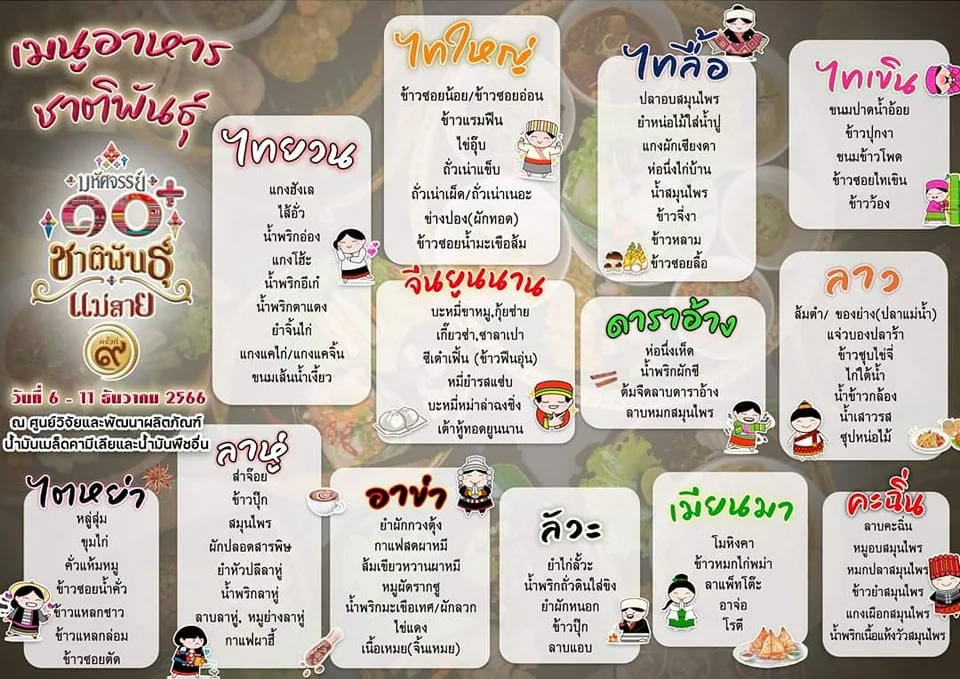 เมนูอาหาร
ชาติพันธุ์
มหัศจรรย์
๑๐+
ชาติพันธุ์
แม่สาย
ครั้งที่
๙
วันที่ 6 - 11 ธันวาคม 2566
ณ ศูนย์วิจัยและพัฒนาผลิตภัณฑ์
น้ำมันเมล็ดคามีเลียและน้ำมันพืชอื่น
ไทยวน
แกงฮังเล
ไส้อั่ว
น้ำพริกอ่อง
แกงโฮ้ะ
น้ำพริกอีเก๋
น้ำพริกตาแดง
ยำจิ้นไก่
แกงแคไก่/แกงแคจิ้น
ขนมเส้นน้ำเงี้ยว
ไทใหญ่
ข้าวซอยน้อย/ข้าวซอยอ่อน
ข้าวแรมฟืน
ไข่อุ๊บ
ถั่วเน่าแข็บ
ถั่วเน่าเผ็ด/ถั่วเน่าเนอะ
ข่างปอง(ผักทอด)
ข้าวซอยน้ำมะเขือส้ม
ไทลื้อ
ปลาอบสมุนไพร
ยำหน่อไม้ใส่น้ำปู
แกงผักเชียงดา
ห่อนึ่งไก่บ้าน
น้ำสมุนไพร
ข้าวจี่งา
ข้าวหลาม
ข้าวซอยลื้อ
ไทเขิน
ขนมปาดน้ำอ้อย
ข้าวปุกงา
ขนมข้าวโพด
ข้าวซอยไทเขิน
ข้าวว้อง
จีนยูนนาน
บะหมี่ขาหมู,กุ้ยช่าย
เกี๊ยวซ่า,ซาลาเปา
ซีเต๋าเฟิ่น (ข้าวฟืนอุ่น)
หมี่ยำรสแซ่บ
บะหมี่หม่าล่าฉงชิ่ง
เต้าหู้ทอดยูนนาน
ดาราอ้าง
ห่อนึ่งเห็ด
น้ำพริกผักชี
ต้มจืดลาบดาราอ้าง
ลาบหมกสมุนไพร
ลาว
ส้มตำ/ ของย่าง(ปลาแม่น้ำ)
แจ่วบองปลาร้า
ข้าวชุบไข่จี่
ไก่ใต้น้ำ
น้ำข้าวกล้อง
น้ำเสาวรส
ซุปหน่อไม้
ไตหย่า
หลู่สุ่ม
ขุมไก่
คั่วแห้มหมู
ข้าวซอยน้ำคั่ว
ข้าวแหลกซาว
ข้าวแหลกล่อม
ข้าวซอยตัด
ลาหู่
สำจ๊อย
ข้าวปุ๊ก
สมุนไพร
ผักปลอดสารพิษ
ยำหัวปลีลาหู่
น้ำพริกลาหู่
ลาบลาหู่, หมูย่างลาหู่
กาแฟผาฮี้
อาข่า
ยำผักกวงตุ้ง
กาแฟสดผาหมี
ส้มเขียวหวานผาหมี
หมูผัดรากชู
น้ำพริกมะเขือเทศ/ผักลวก
ไข่แดง
เนื้อเหมย(จิ้นเหมย)
ลัวะ
ยำไก่ลั้วะ
น้ำพริกถั่วดินใส่ขิง
ยำผักหนอก
ข้าวปุ๊ก
ลาบแอบ
เมียนมา
โมหิงคา
ข้าวหมกไก่พม่า
ลาแพ็ทโต๊ะ
อาจ่อ
โรตี
คะฉิ่น
ลาบคะฉิ่น
หมูอบสมุนไพร
หมกปลาสมุนไพร
ข้าวยำสมุนไพร
แกงเผือกสมุนไพร
น้ำพริกเนื้อแห้งวัวสมุนไพร